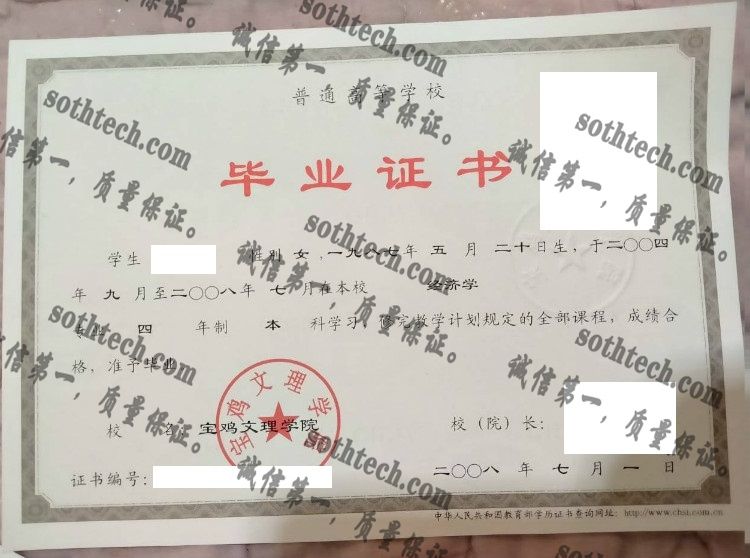 普通高等学校
毕业证书
学生 性别 女，一九八七年 五 月 二十日生，于二〇〇四
年 九 月至二〇〇八年 七 月在本校 经济学
专业 四 年制 本 科学习，修完教学计划规定的全部课程，成绩合
格，准予毕业。
宝鸡文理学院
校 名：宝鸡文理学院 校（院）长：
证书编号： 二〇〇八 年 七 月 一 日
中华人民共和国教育部学历证书查询网址：http://www.chsi.com.cn
sothtech.com
诚信第一，质量保证。
sothtech.com
诚信第一，质量保证。
sothtech.com
诚信第一，质量保证。
sothtech.com
诚信第一，质量保证。
sothtech.com
诚信第一，质量保证。
sothtech.com
诚信第一，质量保证。
sothtech.com
诚信第一，质量保证。
sothtech.com
诚信第一，质量保证。